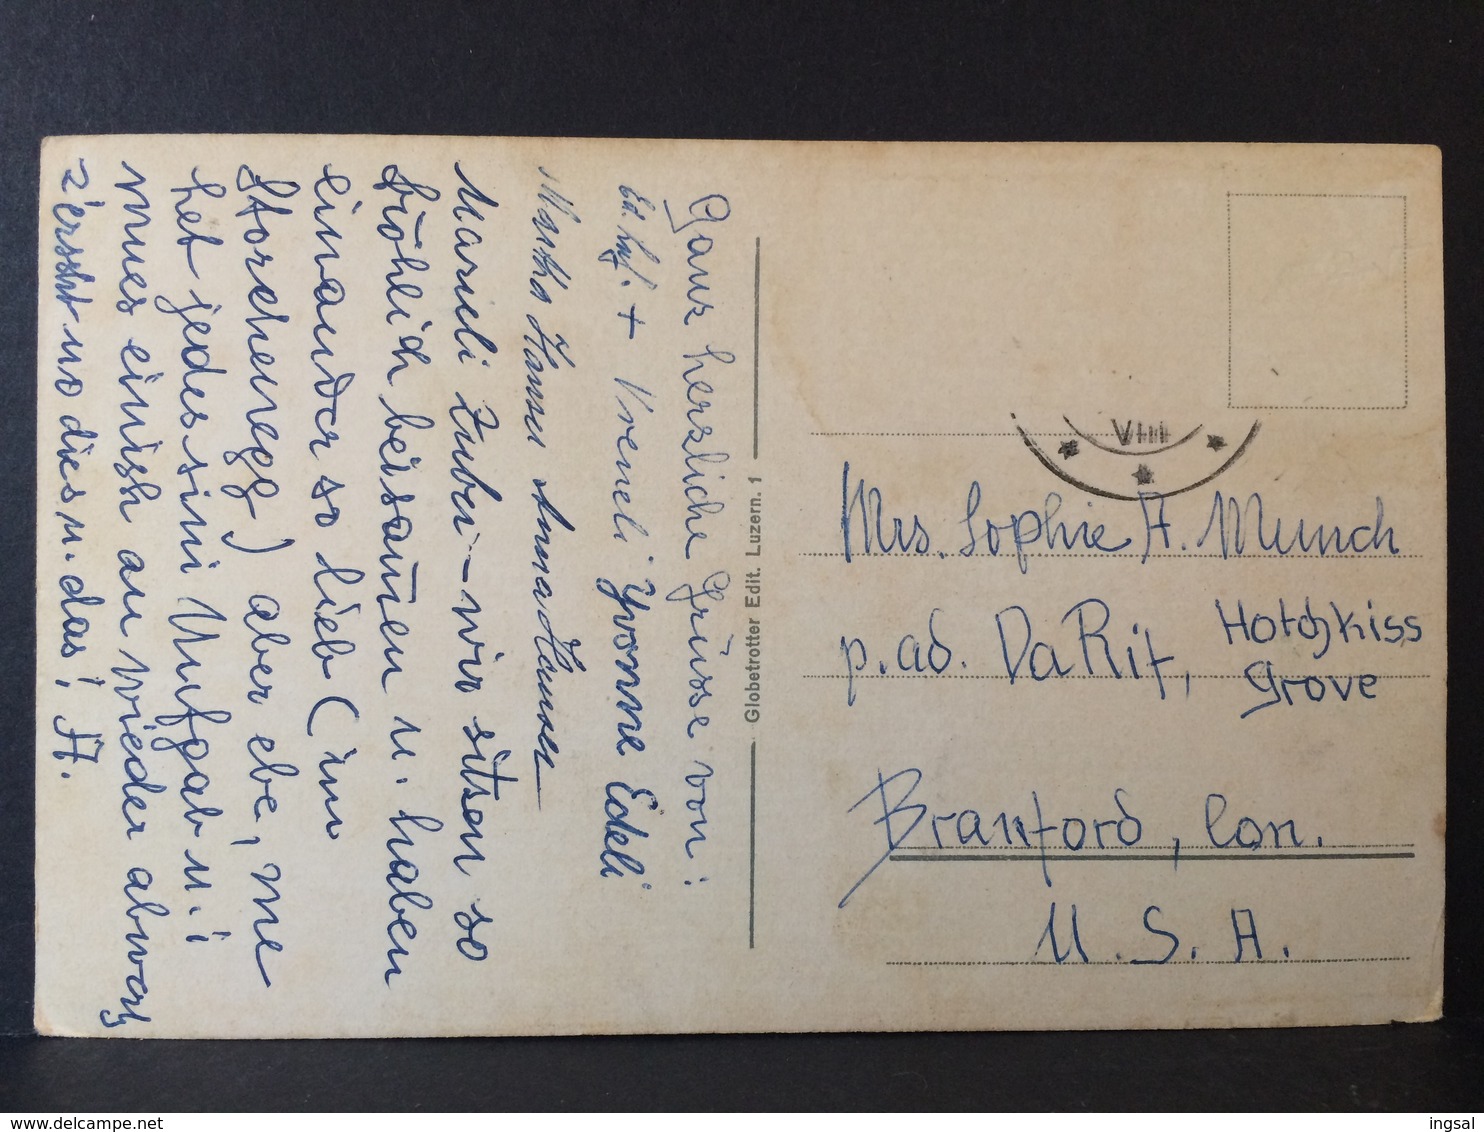 Ganz herzliche Grüsse von:
+ Vreneli Yvonne Edeli
Martha Hauser Anna Hauser
Marieli Zuber – wir sitzen so
fröhlich beisamen u. haben
einander so lieb (im
Storchenegg) aber ebe, me
het jedes sini Ufgab u. i
mues einisch au wieder abwerts
z'erscht no dies u. das! A.
Globetrotter Edit. Luzern. 1
VIII
Mrs. Sophie A. Munch
p. ad. DaRit, Hotchkiss
Grove
Branford, Con.
U. S. A.
www.delcampe.net
ingsal